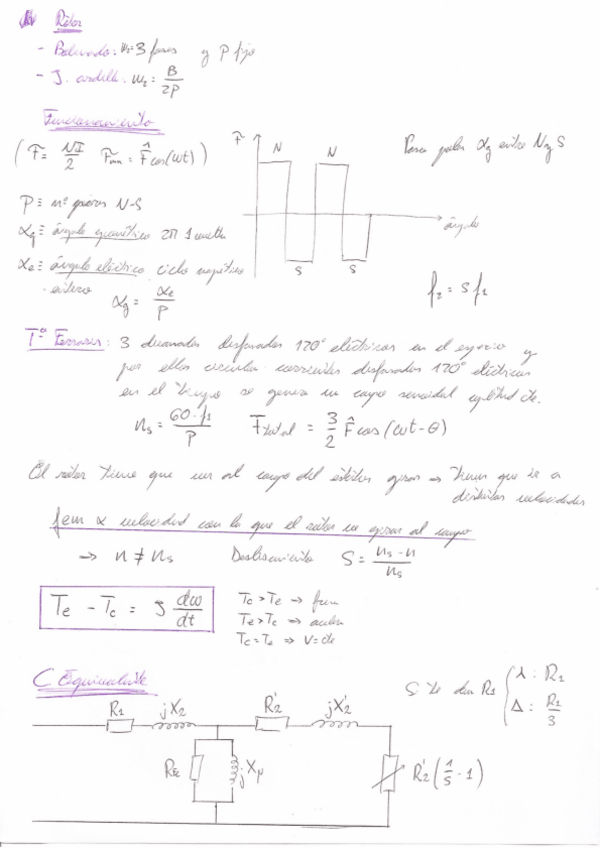 Rotor
- Bobinado: m₂=3 fases y P fijo
- J. ardilla: m₂ = B/2P
Funcionamiento
(F = NI/2 F = F̂ cos(ωt))
F N N
S S
ángulo
Pasa por α_g entre N y S
P ≡ nº pares N-S
α_g ≡ ángulo geométrico 2π 1 vuelta
α_e ≡ ángulo eléctrico ciclo magnético
entero α_g = α_e/P
f₂ = S f₁
Tª Ferraris: 3 devanados desfasados 120° eléctricos en el espacio y
por ellos circulan corrientes desfasadas 120° eléctricos
en el tiempo se genera un campo senoidal amplitud cte.
n_s = 60·f₁/P F_total = 3/2 F̂ cos(ωt-θ)
El rotor tiene que ver al campo del estátor girar ⇒ Tienen que ir a
distintas velocidades
fem α velocidad con la que el rotor ve girar al campo
⇒ n ≠ n_s Deslizamiento S = (n_s - n)/n_s
T_e - T_c = J dω/dt
T_c > T_e ⇒ frena
T_e > T_c ⇒ acelera
T_c = T_e ⇒ V = cte
C Equivalente
Si te dan R₁ { λ: R₁
Δ: R₁/3
R₁ jX₂ R₂' jX₂'
jX_μ R₂'(1/S - 1)